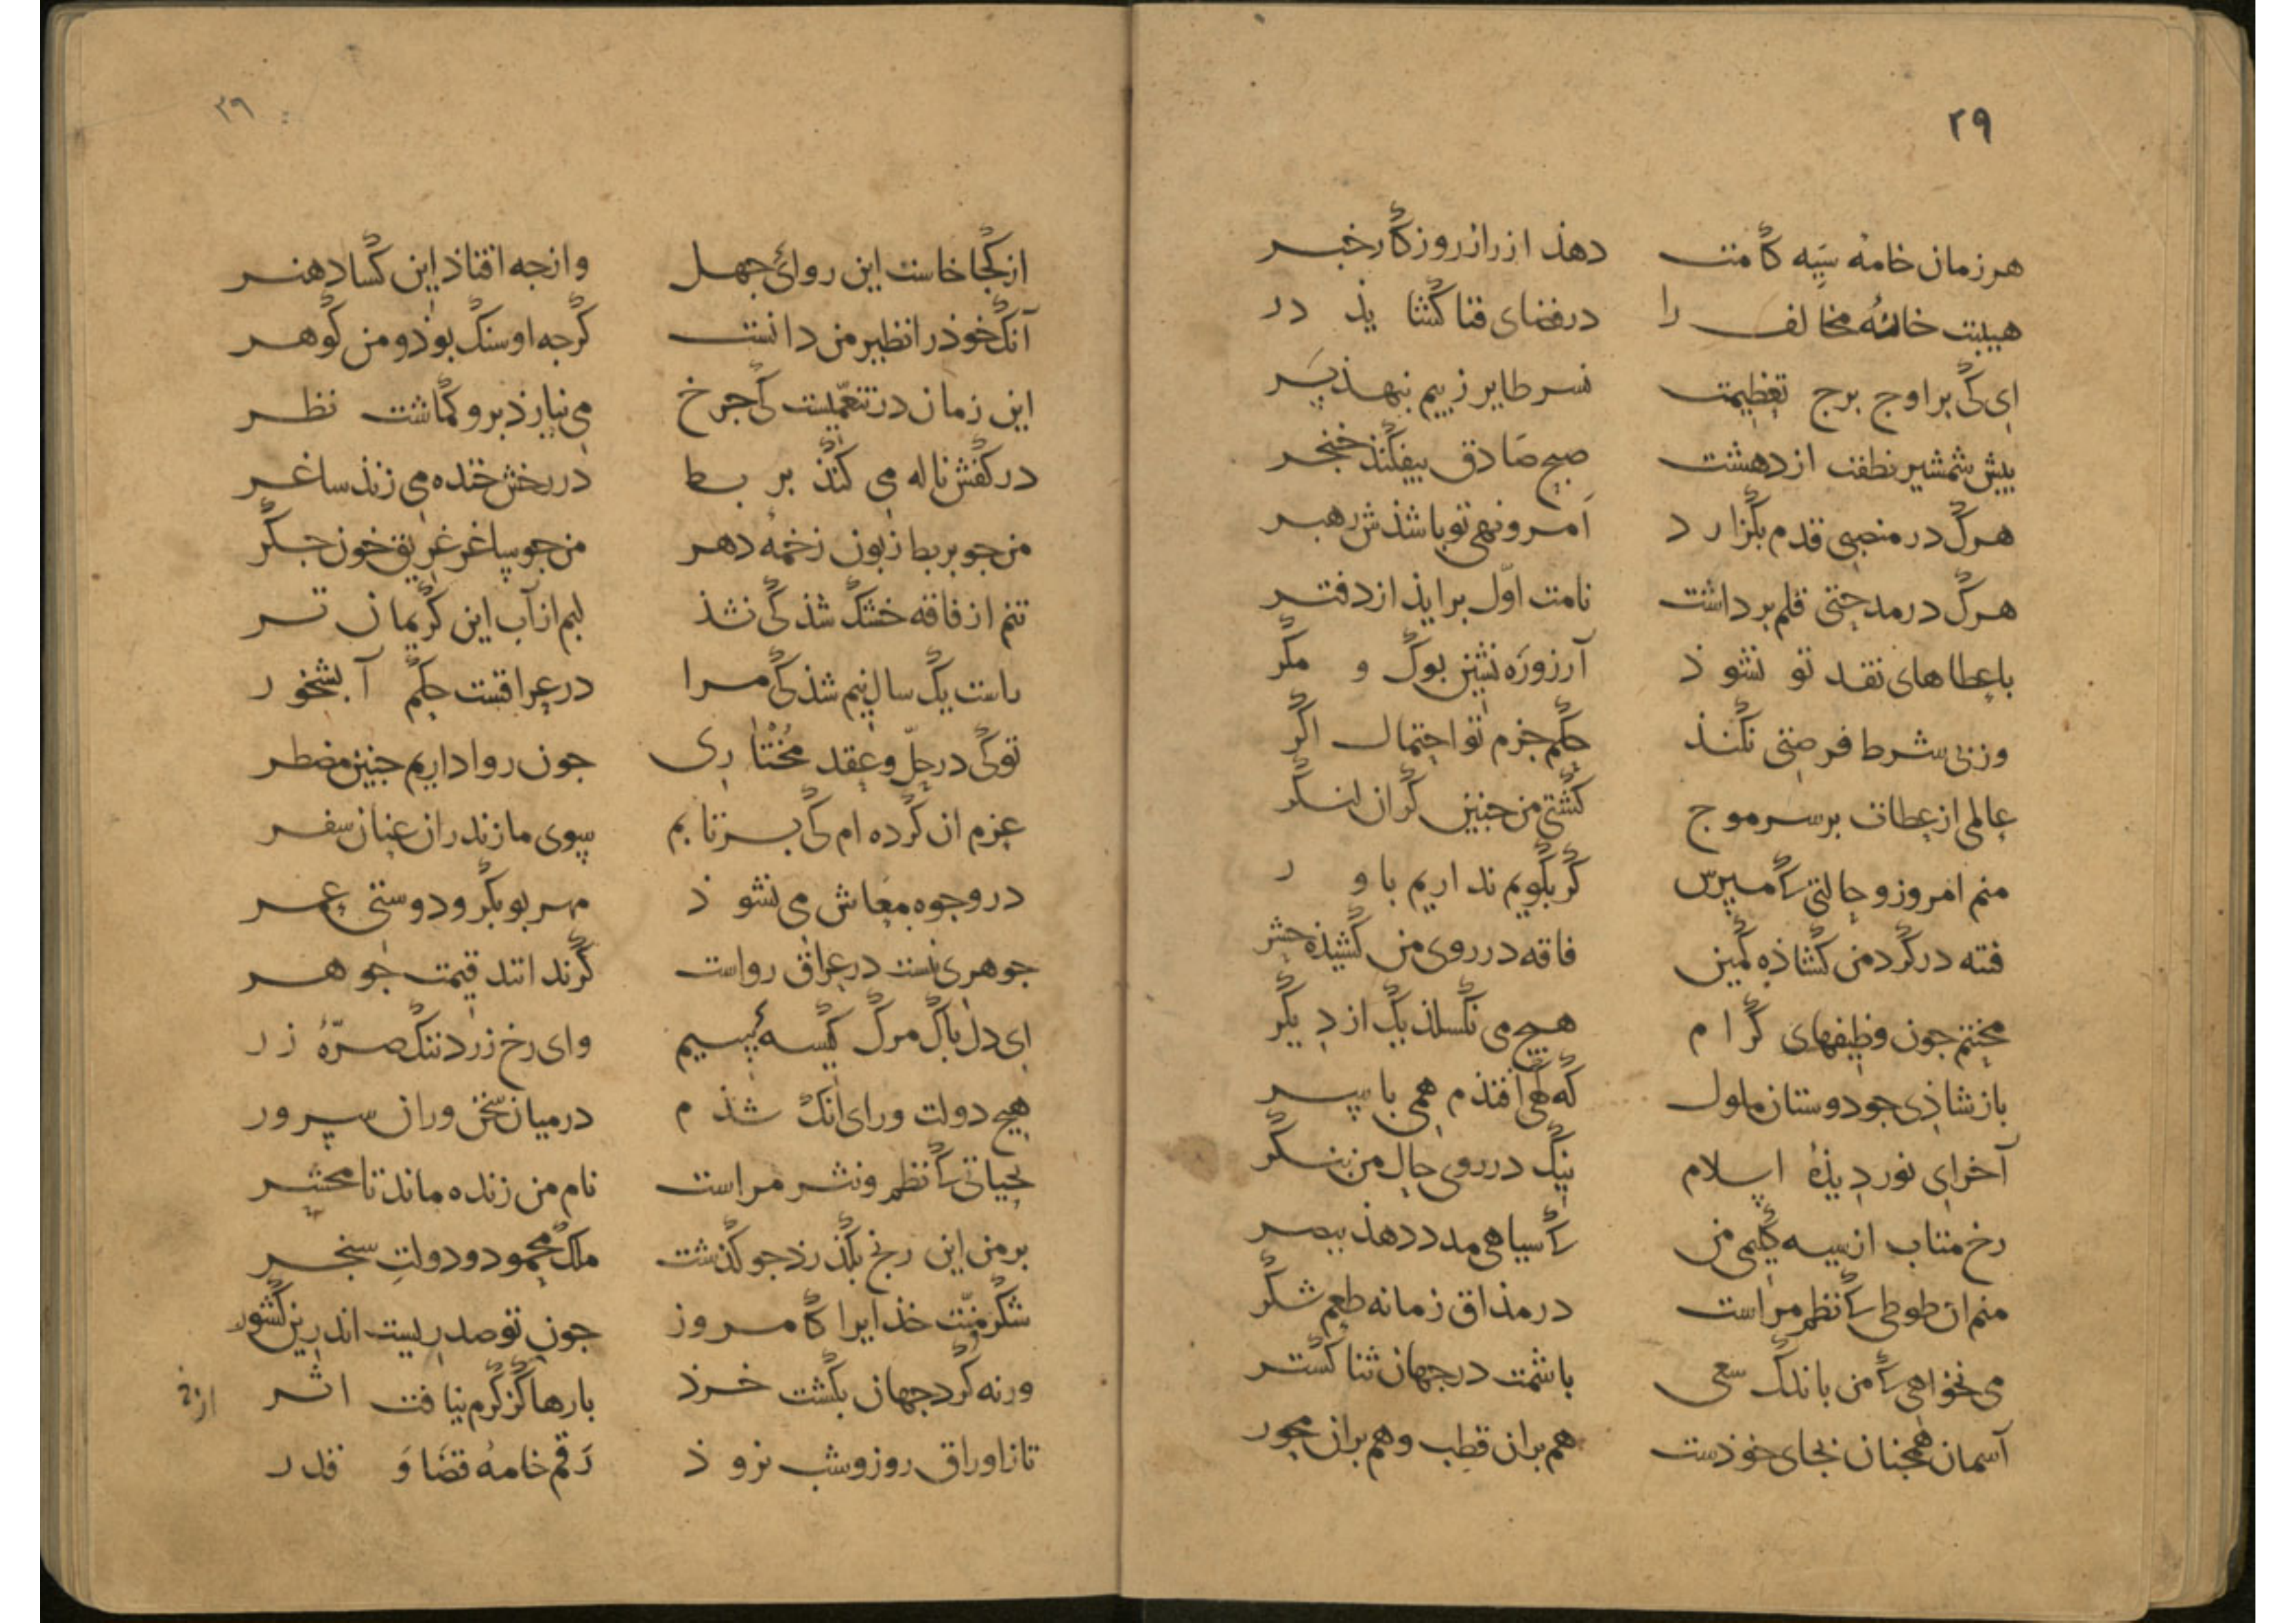 ۲۹
هر زمان خامهٔ سیه کامت دهذ از راز روزکار خبر
هیبت خانهٔ مخالف را در فضای فنا کشایذ در
ای کی بر اوج برج تعظیمت نسر طایر ز بیم بنهذ پر
پیش شمشیر نطقت از دهشت صبح صادق بیفکنذ خنجر
هرک در منصبی قدم بکزارد امر و نهی تو باشذش رهبر
هرک در مدحتی قلم برداشت نامت اوّل برایذ از دفتر
با عطاهای نقد تو نشوذ آرزو ره نشین بوک و مکر
وز بی شرط فرصتی نکنذ حکم جزم تو احتمال اکر
عالمی از عطات بر سر موج کشتی من جنین کران لنکر
منم امروز و حالتی کہ مپرس کر بکویم نداریم باور
فتنه در کرد من کشاذه کمین فاقه در روی من کشیذه حشر
محنتم جون وظیفهای کرام هیچ می نکسلذ یک از دیکر
باز شاذی جو دوستان ملول که کهی افتذم همی با سر
آخر ای نور دیذهٔ اسلام نیک در روی حال من بنکر
رخ متاب از سیه کلیمی من کہ سیاهی مدد دهذ ببصر
منم ان طوطی کہ نظم مراست در مذاق زمانه طعم شکر
می نخواهی کہ من باندک سعی باشمت در جهان ثنا کستر
آسمان همجنان بجای خوذست هم بران قطب و هم بران محور
۳۹
از کجا خاست این روائی جهل وازجه افتاذ این کساد هنر
آنک خوذ را نظیر من دانست کرجه او سنک بوذ و من کوهر
این زمان در تنعّمیست کی جرخ می نیارذ برو کماشت نظر
در کفش ناله می کنذ بربط در رخش خنده می زنذ ساغر
من جو بربط زبون زخمهٔ دهر من جو ساغر غریق خون جکر
تنم از فاقه خشک شذ کی نشذ لبم از آب این کریمان تر
راست یک سال نیم شذ کی مرا در عراقست حکم آبشخور
تو کی در حلّ و عقد مختاری جون روا داریم جنین مضطر
عزم ان کرده ام کی بر تابم سوی مازندران عنان سفر
در وجوه معاش می نشوذ مهر بوبکر و دوستی عمر
جوهری نیست در عراق رواست کر ندانند قیمت جوهر
ای دل پاک مرک کیسهٔ سیم وای رخ زرد ننک صرّهٔ زر
هیچ دولت ورای انک شذم در میان سخن وران سرور
بحیاتی کہ نظم و نثر مراست نام من زنده ماند تا محشر
بر من این رنج بکذرذ جو کذشت ملک محمود و دولت سنجر
شکر و منّت خذایرا کامروز جون تو صدریست اندرین کشور
ورنه کرد جهان بکشت خرذ بارها کز کرم نیافت اثر
تا ز اوراق روز و شب نروذ رقم خامهٔ قضا و قدر